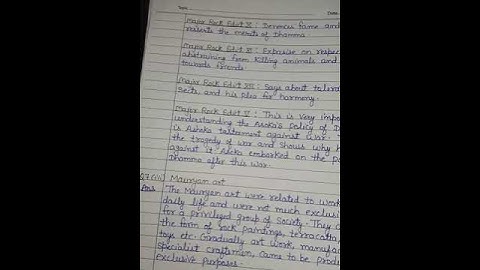 Topic
Date
Major Rock Edict X : Denences fame and
resents the merits of dhamma.
Major Rock Edict XI : Expresise on respec
abstraining from killing animals and
towards friends.
Major Rock Edict XII : Says about tolera
Sects, and his plea for harmony.
Major Rock Edict V : This is very impo
understanding the Asoka's policy of D
is Ashoka tastament against war.
the tragedy of war and shows why h
against it. Asoka embarked on the po
Dhamma after this war.
Mauryan art
Ans The Mauryan art were related to work
daily life and were not much exclusi
for a privileged group of Society. They
the form of rock paintings, terracotta,
toys etc. Gradually art work, manufac
specialist craftsmen, came to be produ
exclusive purposes.